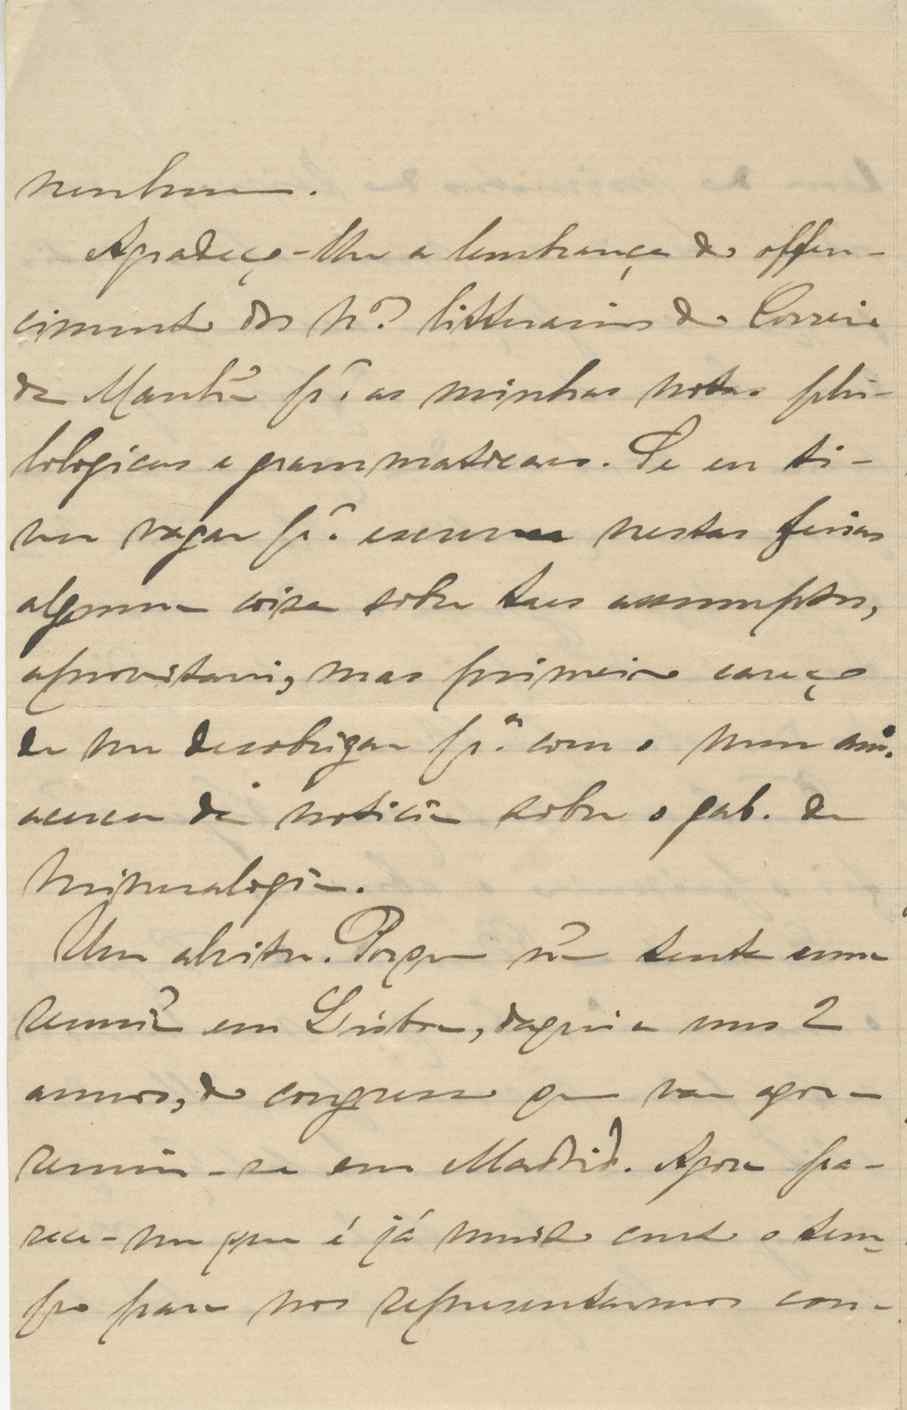 nenhum.
Agradeço-lhe a lembrança do offere-
cimento dos nos litterarios do Correio
da Manhã pa. as minhas notas phi-
lologicas e grammaticaes. Se eu ti-
ver vagar pa. escrever nestas ferias
alguma coisa sobre taes assumptos,
aproveitarei, mas primeiro careço
de me desobrigar pa. com o meu ami.
acerca da noticia sobre o gab. de
mineralogia.
Um alvitre. Porque não tenta uma
reunião em Lisboa, daqui a uns 2
annos, do congresso que vae agora
reunir-se em Madrid. Agora pa-
rece-me que é já muito curto o tem-
po para nos representarmos con-